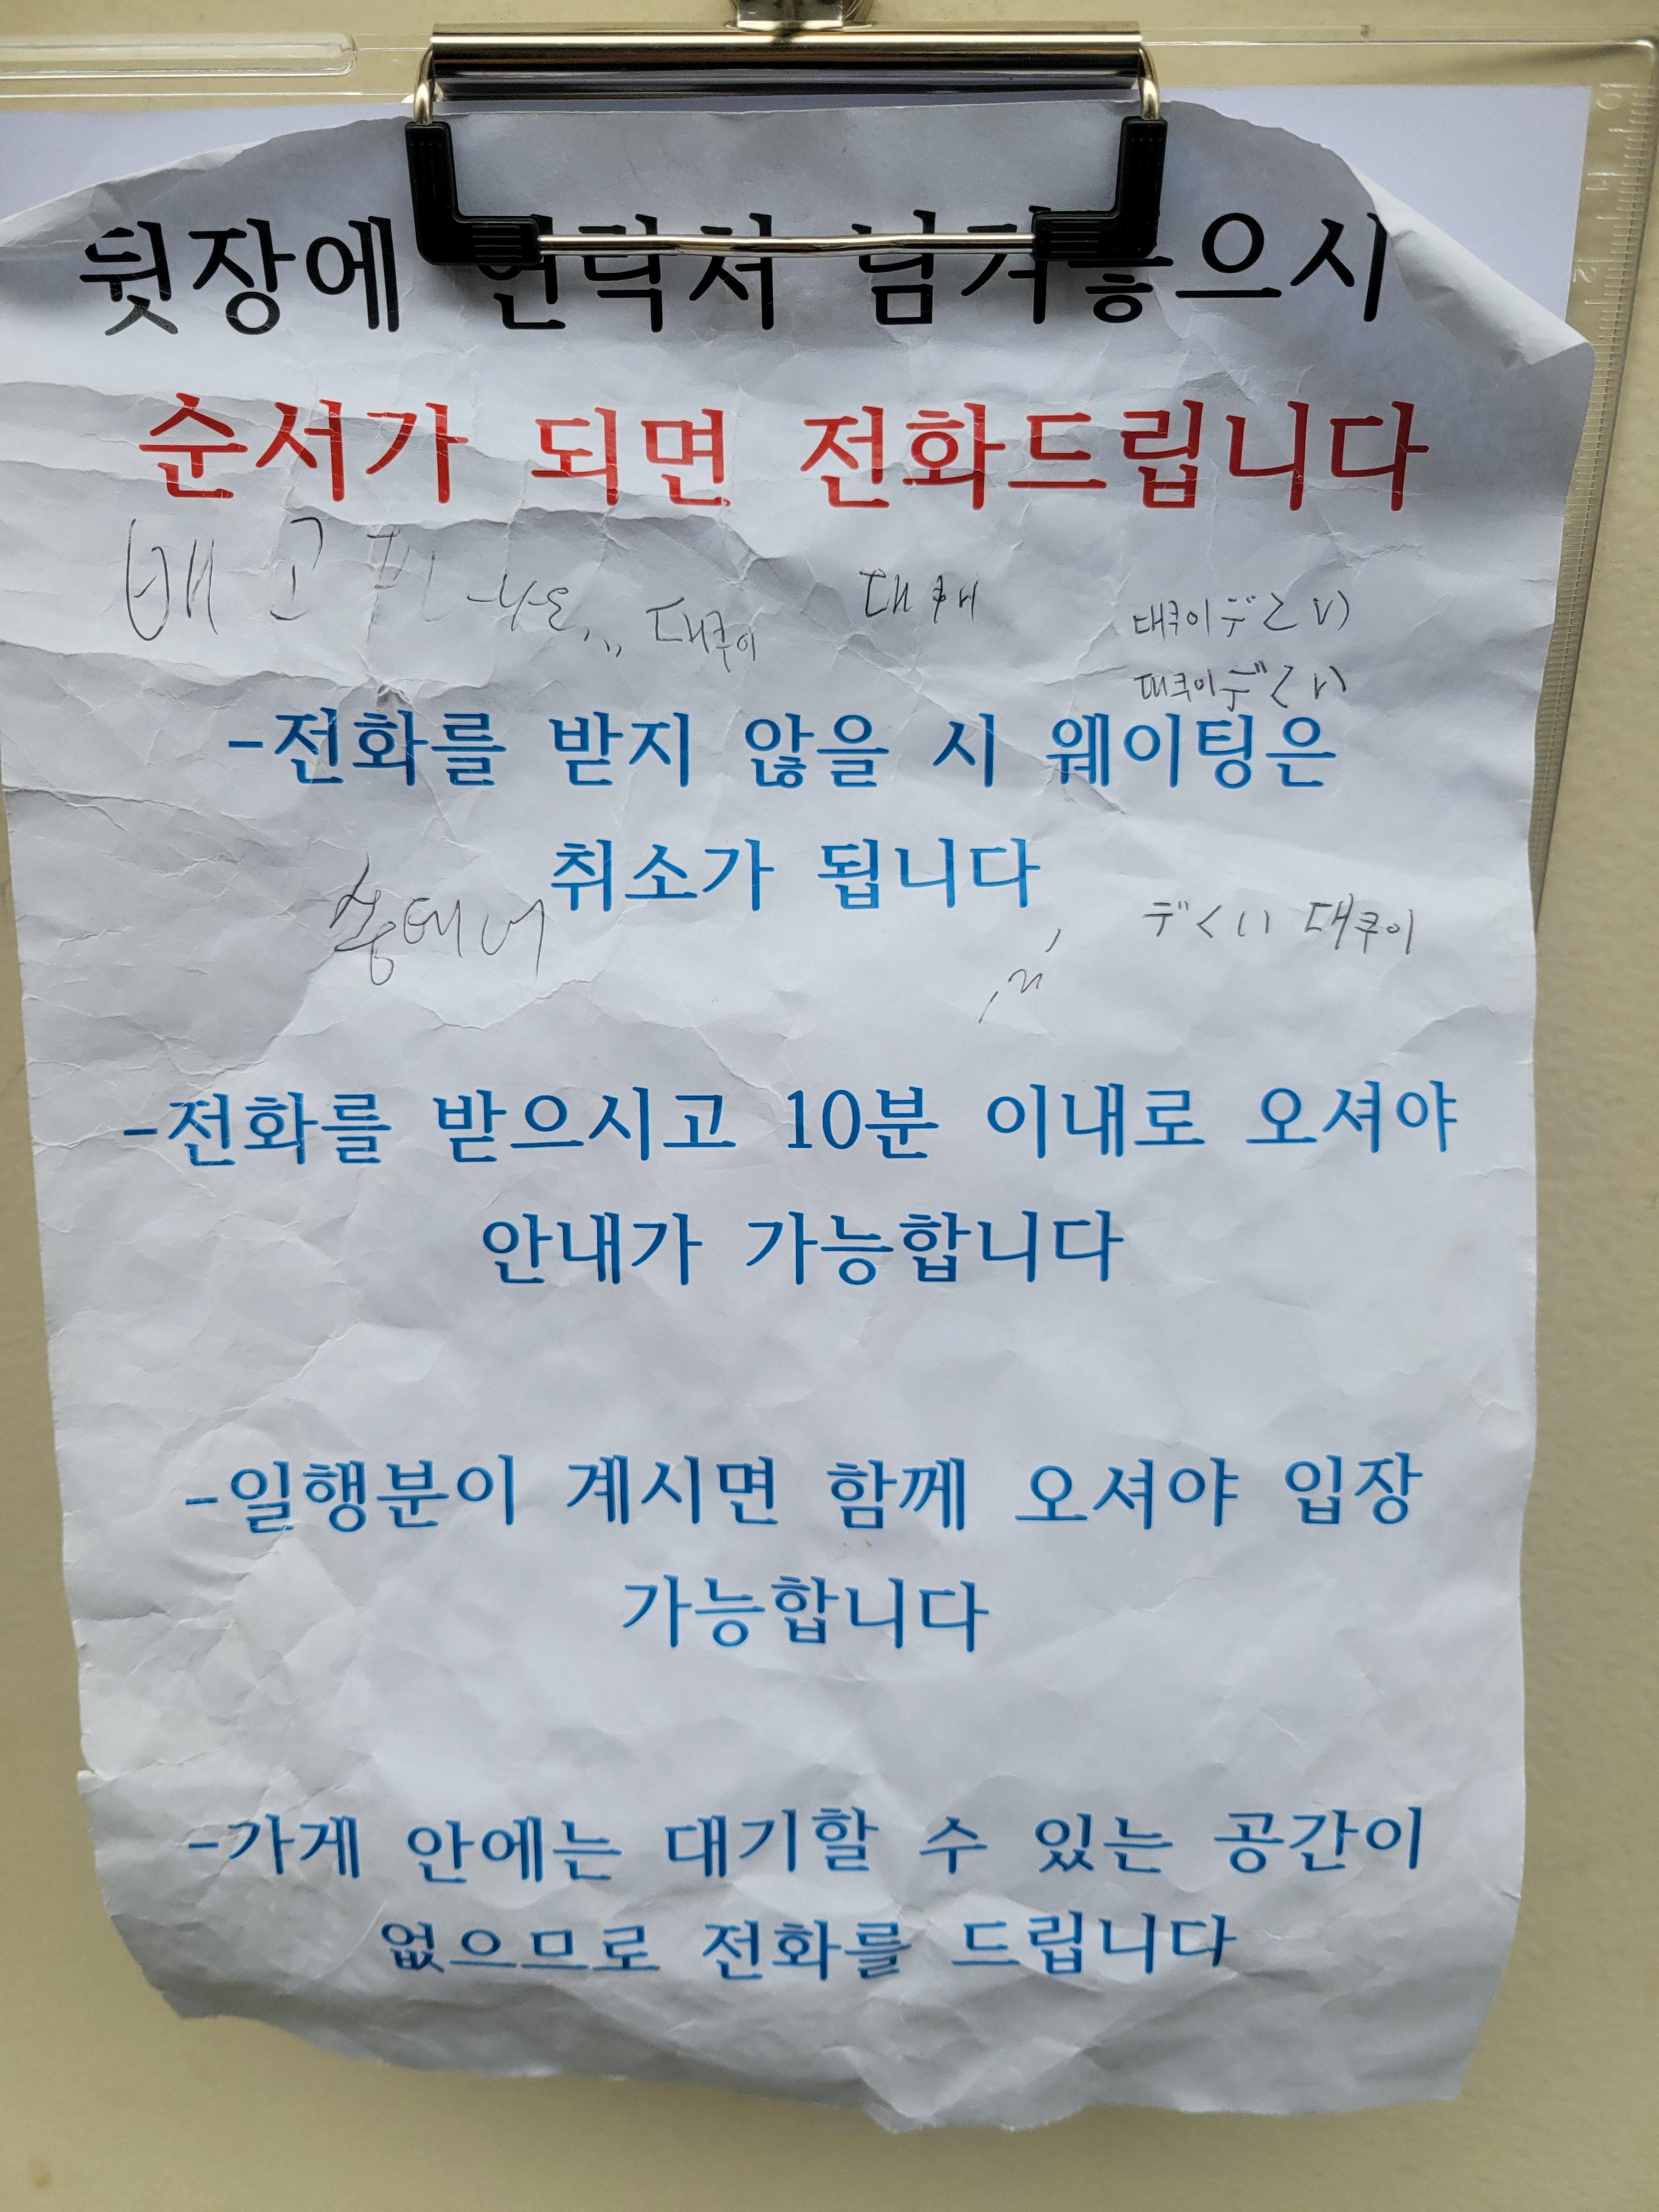 뒷장에 연락처 남겨놓으시
순서가 되면 전화드립니다
배고파 대쿠이
대쿠이デくい
대쿠이デくい
-전화를 받지 않을 시 웨이팅은
취소가 됩니다
デくい 대쿠이
-전화를 받으시고 10분 이내로 오셔야
안내가 가능합니다
-일행분이 계시면 함께 오셔야 입장
가능합니다
-가게 안에는 대기할 수 있는 공간이
없으므로 전화를 드립니다